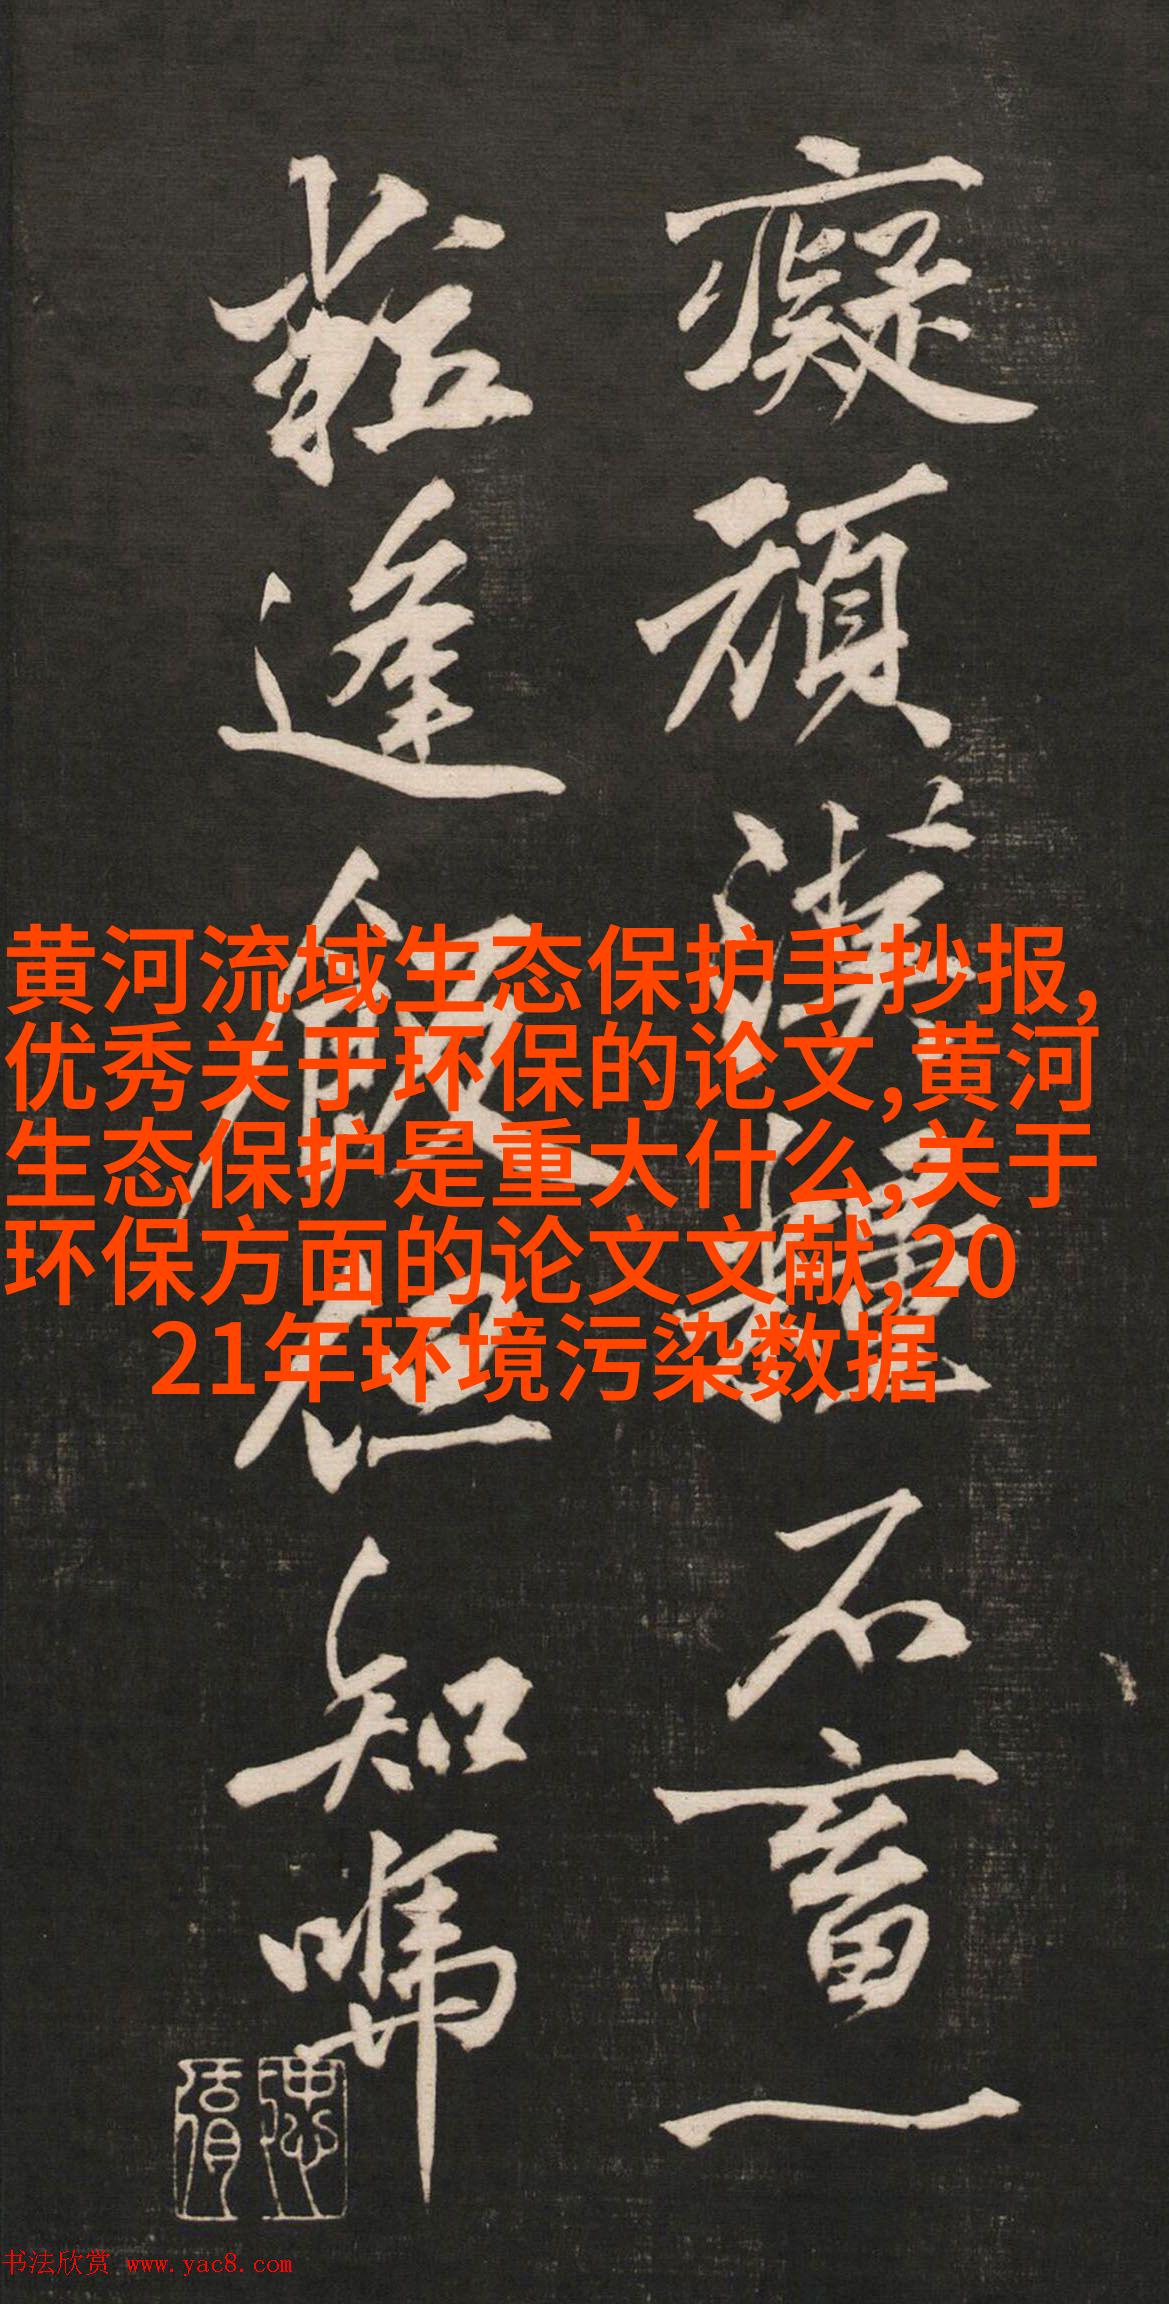 癡頑漢不畜一
粒逢飯但知
黄河流域生态保护手抄报,
优秀关于环保的论文,黄河
生态保护是重大什么,关于
环保方面的论文文献,20
21年环境污染数据
书法欣赏 www.yac8.com